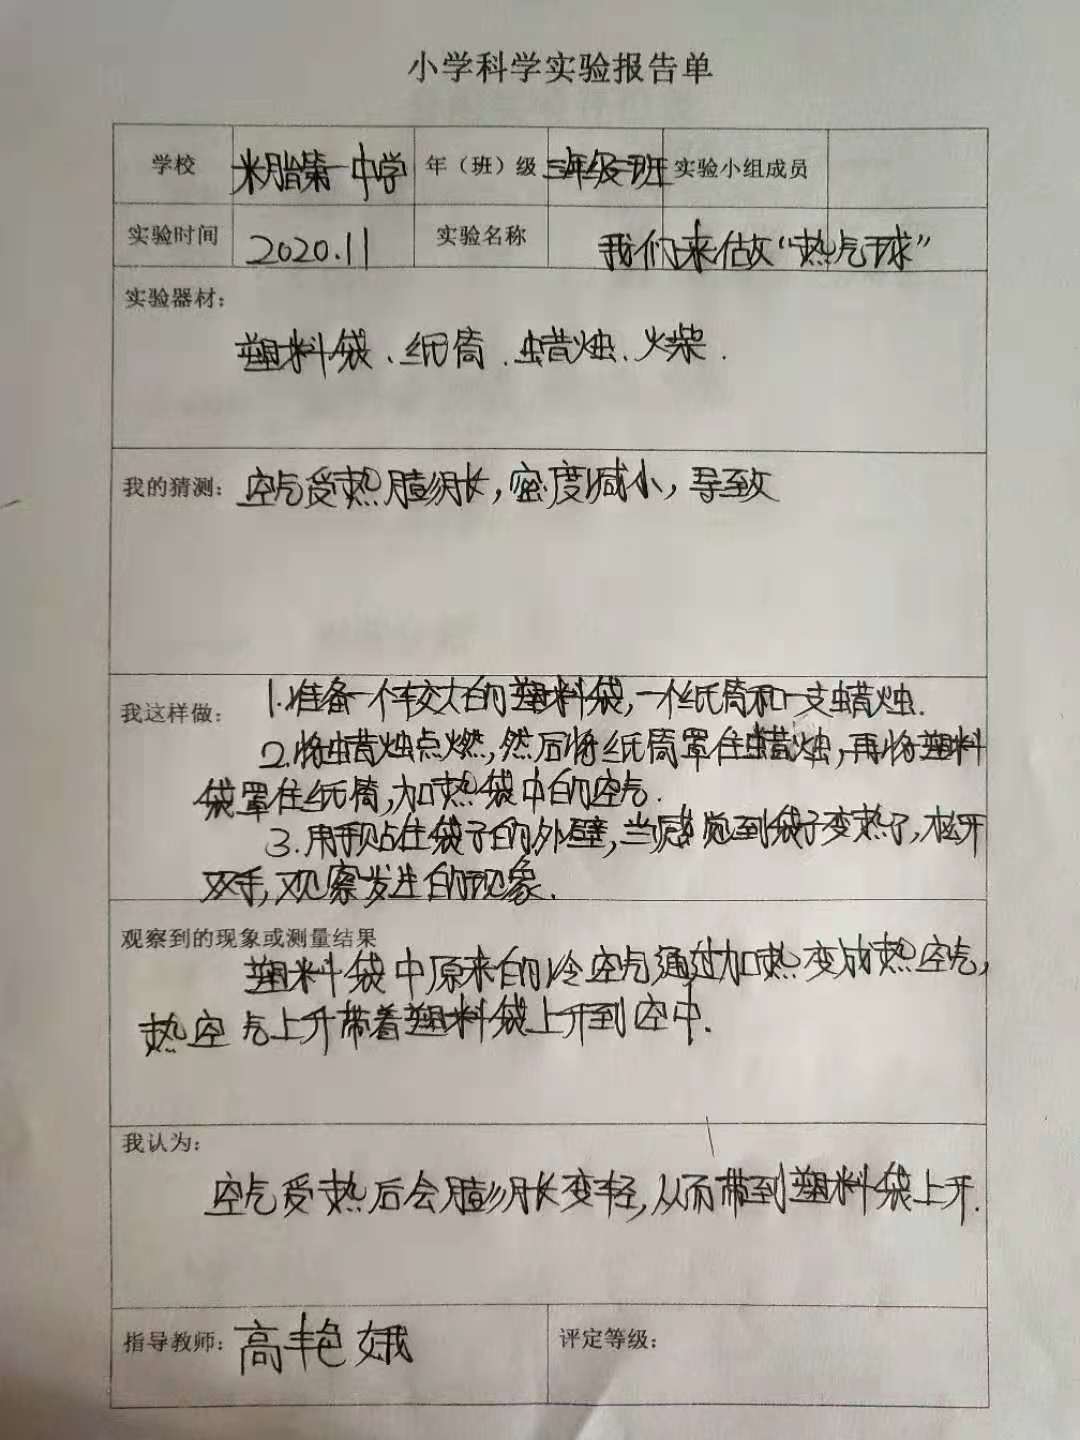 小学科学实验报告单
学校 米脂第一中学 年（班）级 三年级三班 实验小组成员
实验时间 2020.11 实验名称 我们来做“热气球”
实验器材：
塑料袋、纸筒、蜡烛、火柴.
我的猜测：空气受热膨胀，密度减小，导致
我这样做：1.准备一个较大的塑料袋，一个纸筒和一支蜡烛.
2.将蜡烛点燃，然后将纸筒罩住蜡烛，再将塑料
袋罩住纸筒，加热袋中的空气.
3.用手贴住袋子的外壁，当感觉到袋子变热了，松开
双手，观察发生的现象.
观察到的现象或测量结果
塑料袋中原来的冷空气通过加热变成热空气，
热空气上升带着塑料袋上升到空中.
我认为：
空气受热后会膨胀变轻，从而带到塑料袋上升.
指导教师：高艳娥 评定等级：